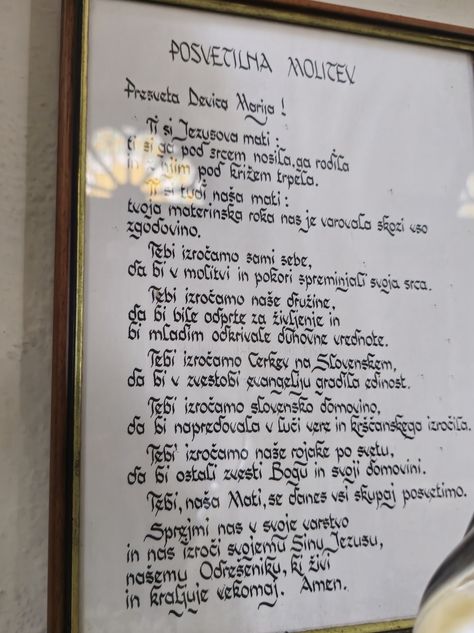 POSVETILNA MOLITEV
Presveta Devica Marija !
Ti si Jezusova mati :
ti si ga pod srcem nosila, ga rodila
in z njim pod križem trpela.
Ti si tudi naša mati :
tvoja materinska roka nas je varovala skozi vso
zgodovino.
Tebi izročamo sami sebe,
da bi v molitvi in pokori spreminjali svoja srca.
Tebi izročamo naše družine,
da bi bile odprte za življenje in
bi mladim odkrivale duhovne vrednote.
Tebi izročamo Cerkev na Slovenskem,
da bi v zvestobi evangeliju gradila edinost.
Tebi izročamo slovensko domovino,
da bi napredovala v luči vere in krščanskega izročila.
Tebi izročamo naše rojake po svetu,
da bi ostali zvesti Bogu in svoji domovini.
Tebi, naša Mati, se danes vsi skupaj posvetimo.
Sprejmi nas v svoje varstvo
in nas izroči svojemu Sinu Jezusu,
našemu Odrešeniku, ki živi
in kraljuje vekomaj. Amen.